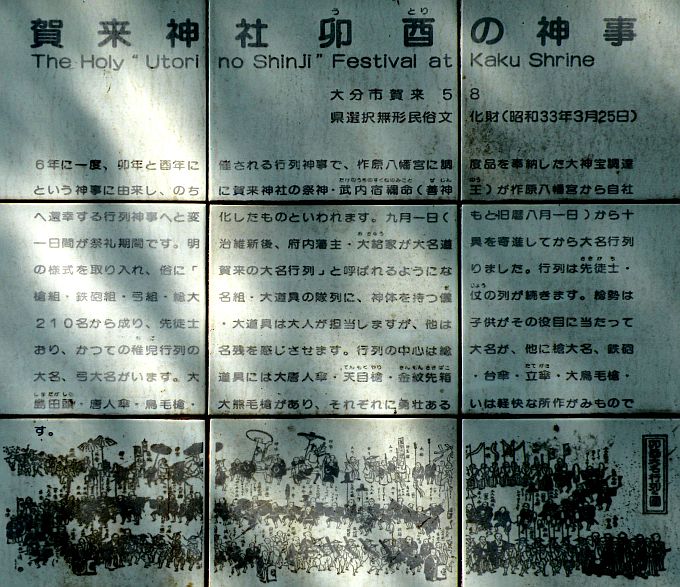 賀来神社卯酉の神事
The Holy "Utori no ShinJi" Festival at Kaku Shrine
大分市賀来58
県選択無形民俗文化財(昭和33年3月25日)
6年に一度、卯年と酉年に催される行列神事で、柞原八幡宮に調度品を奉納した大神宝調達
という神事に由来し、のちに賀来神社の祭神・武内宿禰命(善神王)が柞原八幡宮から自社
へ還幸する行列神事へと変化したものといわれます。九月一日(もと旧暦八月一日)から十
一日間が祭礼期間です。明治維新後、府内藩主・大給家が大名道具を寄進してから大名行列
の様式を取り入れ、俗に「賀来の大名行列」と呼ばれるようになりました。行列は先徒士・
槍組・鉄砲組・弓組・槍大名組・大道具の隊列に、神体を持つ儀仗の列が続きます。総勢は
210名から成り、先徒士・大道具は大人が担当しますが、他は子供がその役目に当たって
おり、かつての稚児行列の名残を感じさせます。行列の中心は槍大名が、他に槍大名、鉄砲
大名、弓大名がいます。大道具には大唐人傘・天目槍・金紋先箱・台傘・立傘・大鳥毛槍・
島田頭・唐人傘・鳥毛槍・大熊毛槍があり、それぞれに勇壮あるいは軽快な所作がみもので
す。